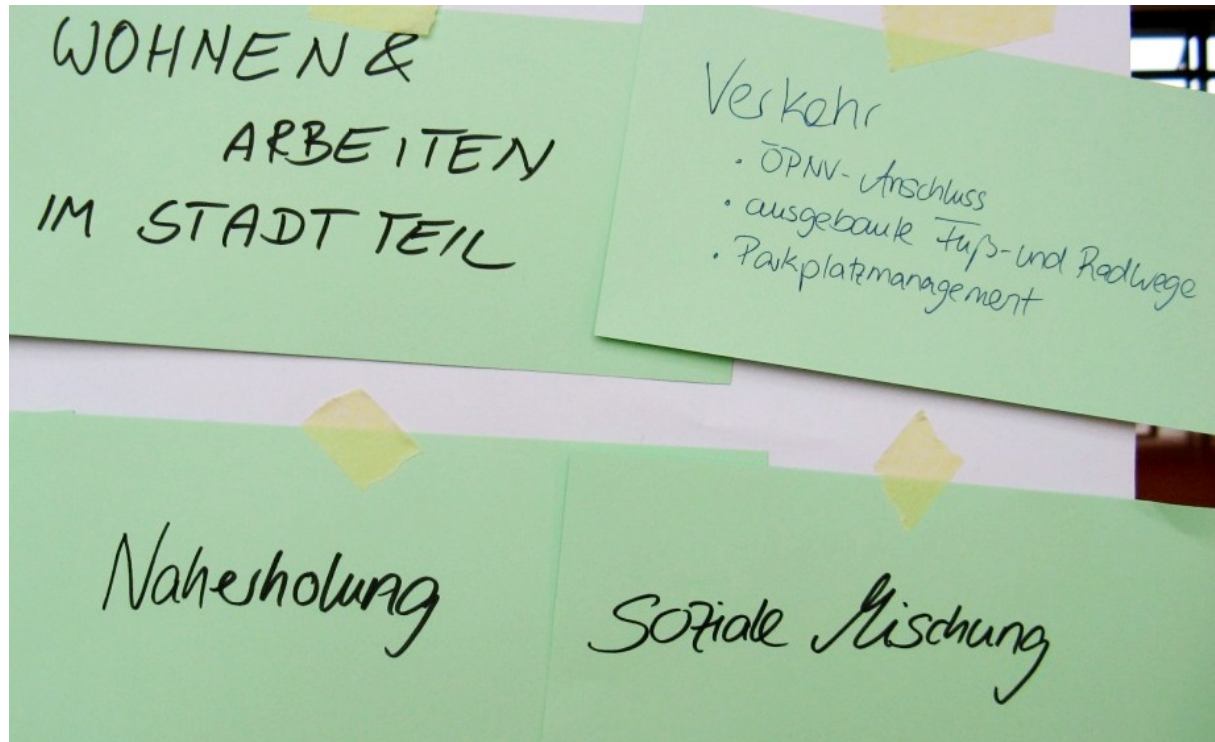 WOHNEN &
ARBEITEN
IM STADTTEIL
Verkehr
· ÖPNV-Anschluss
· ausgebaute Fuß- und Radwege
· Parkplatzmanagement
Naherholung
Soziale Mischung